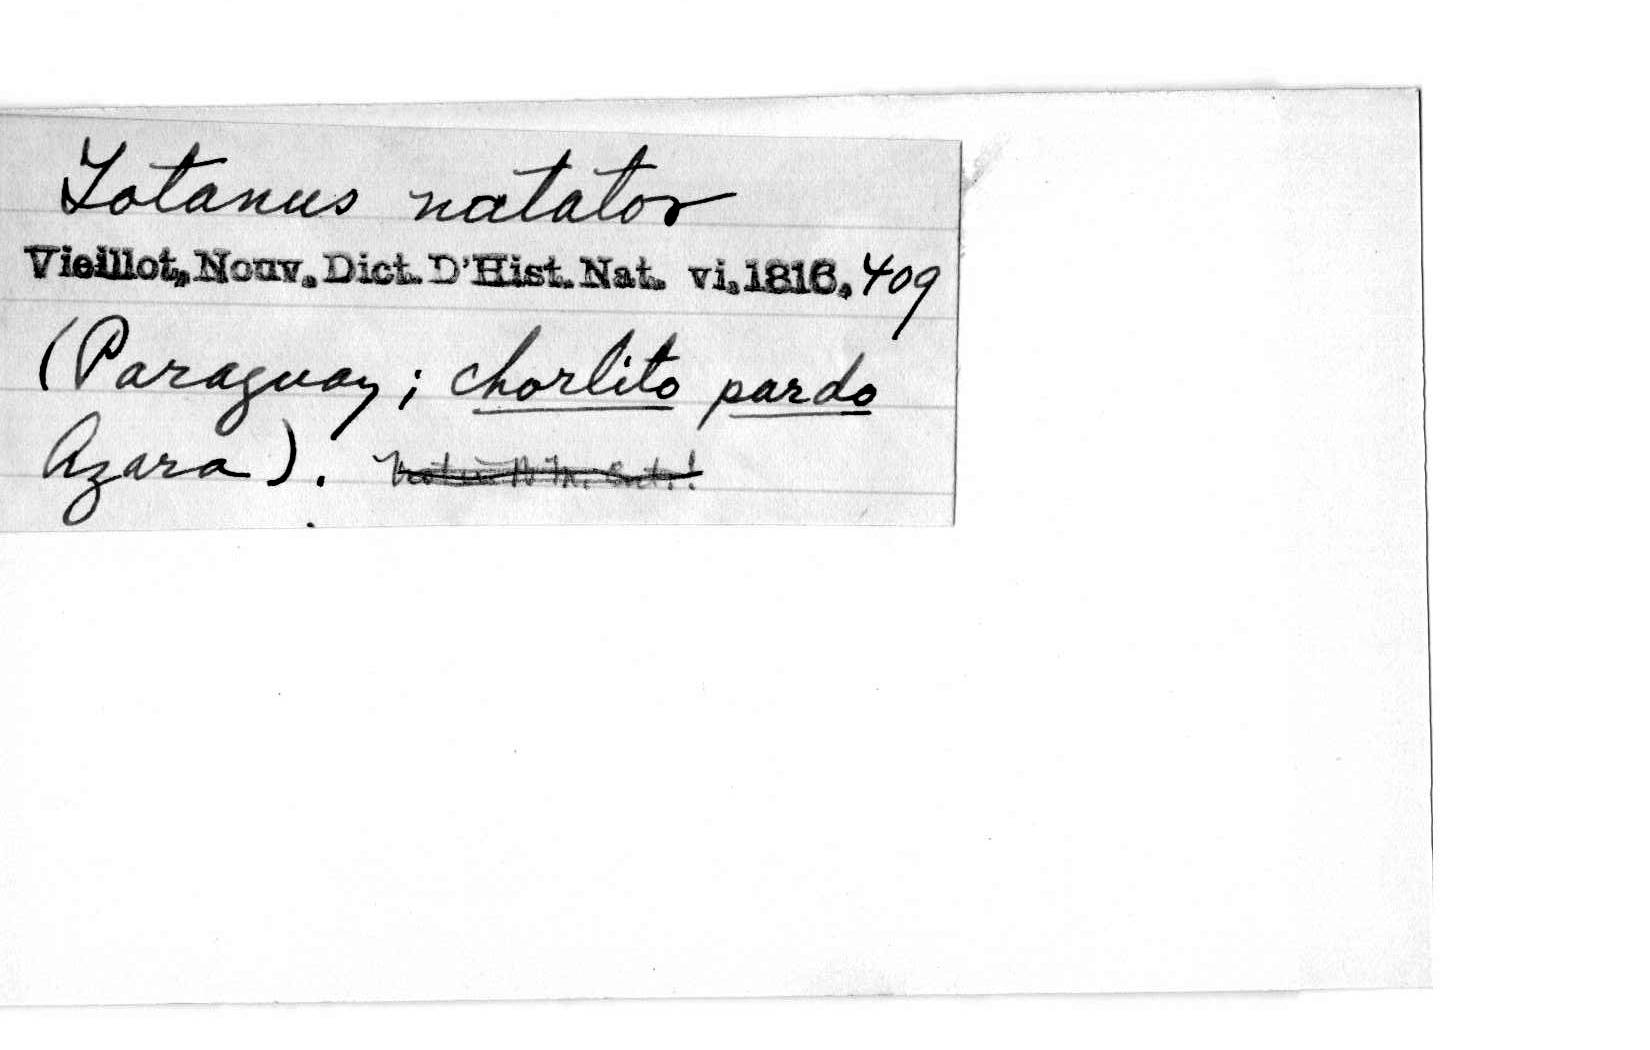 Totanus natator
Vieillot, Nouv. Dict. D'Hist. Nat. vi, 1816, 409
(Paraguay; chorlito pardo
Azara).